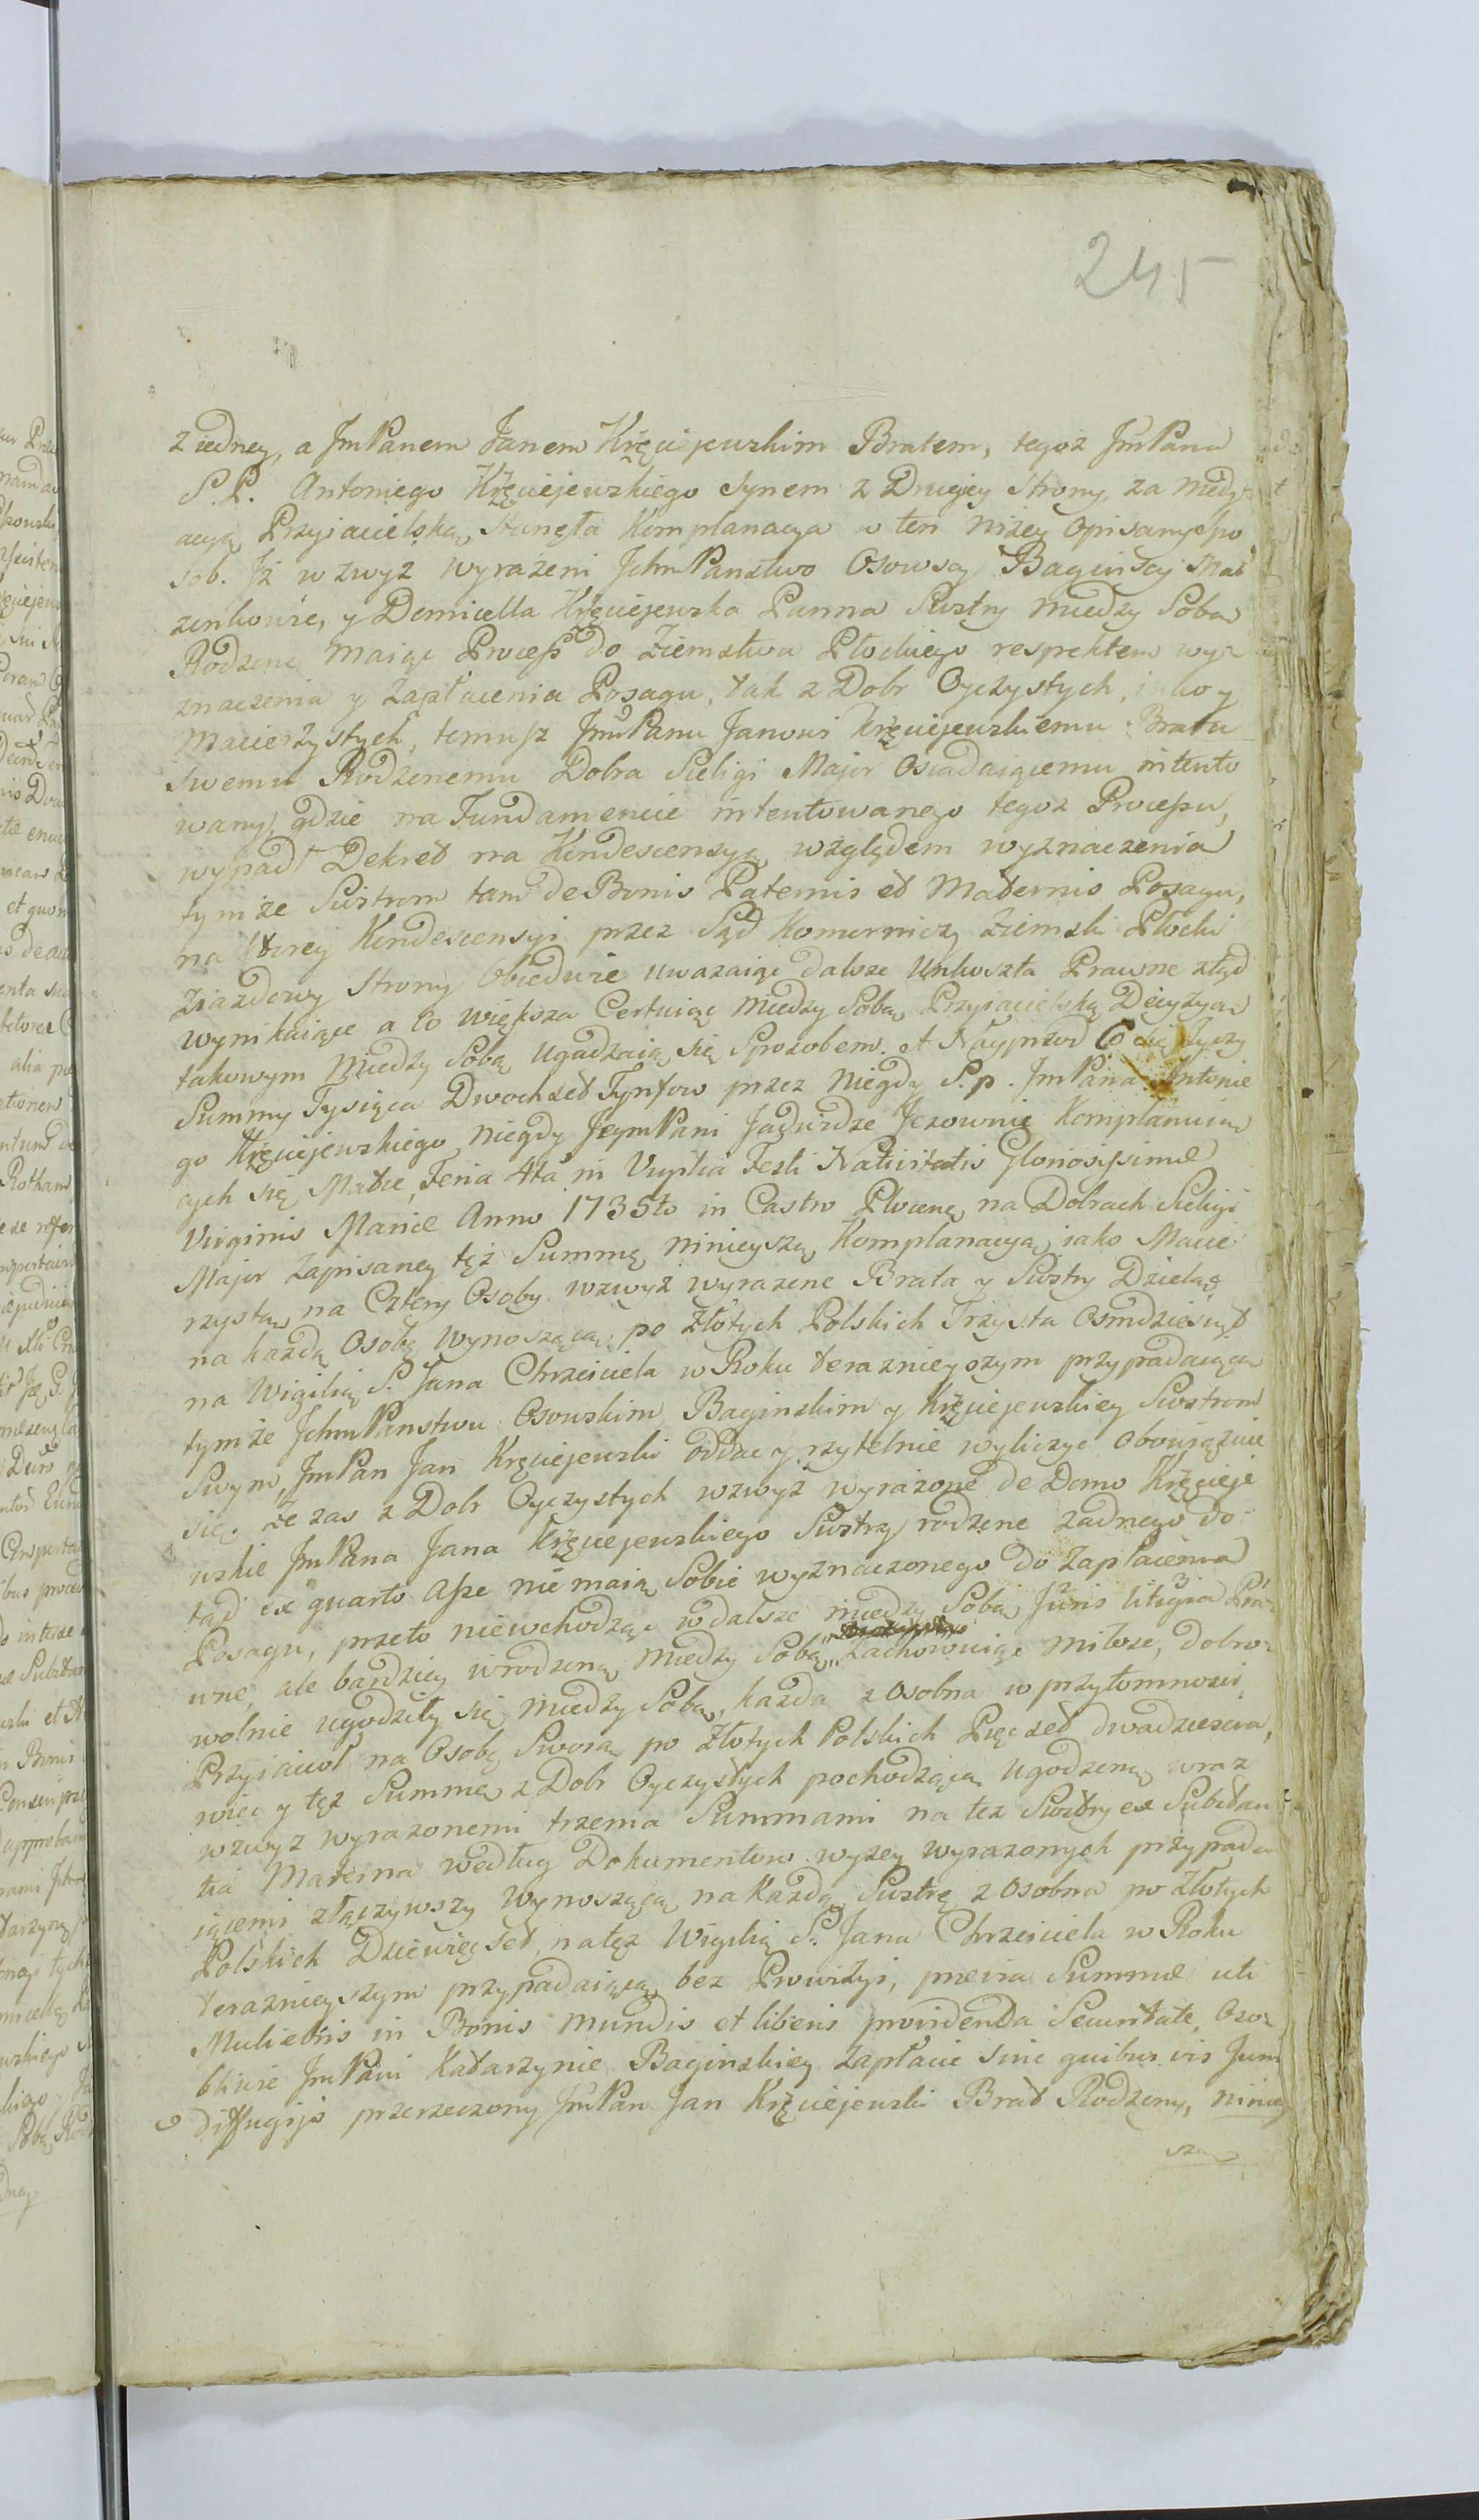 245
z iedney, a JmPanem Janem Kręciejewskim Bratem, tegoż JmPana
S.P. Antoniego Kręciejewskiego Synem z Drugiey Strony, za Medy-
acyą Przyiacielską, stanęła Komplanacya w ten niżey opisany spo
sob. Jż wzwyż wyrażeni JchmPaństwo Osowscy Bagińscy Mał
żenkowie, y Domicella Kręciejewska Panna Siostry między Sobą
Rodzene maiąc Process do Ziemstwa Płockiego respektem wy-
znaczenia y Zapłacenia Posagu, tak z Dobr Oyczystych, iako y
Macierzystych, temusz JmPanu Janowi Kręciejewskiemu Bratu
swemu Rodzenemu Dobra Sieligi Major Osiadaiącemu intento
wany, gdzie na Fundamencie intentowanego tegoż Processu,
wypadł Dekret na Kondescensyą, względem wyznaczenia
tymże Siostrom tam de Bonis Paternis et Maternis Posagu,
na ktorey Kondescensyi przez Sąd Komorniczy Ziemski Płocki
Ziazdowy Strony Obiedwie uwazaiąc dalsze Unkoszta Prawne ztąd
wynikaiące a co większa Certuiąc między Sobą Przyiacielską Decyzyą
takowym między Sobą Ugadzaią się Sposobem. A Nayprzod Co się tyczy
Summy Tysiąca Dwochset Tynfow przez niegdy S.p. JmPana Antonie
go Kręciejewskiego niegdy JeymPani Jadwidze Komplanuią
cych się Matce, Feria 4ta in Vigilia Festi Nativitatis Gloriosissimæ
Virginis Mariæ Anno 1735to in Castro Plocen, na Dobrach Sieligi
Major Zapisaney też Summę ninieyszą Komplanacyą, iako Macie
rzystą, na Cztery Osoby wzwyż wyrażene Brata y Siostry Dzielą,
na każdą Osobę wynoszącą po Złotych Polskich Trzysta Osmdziesiąt
na Wigilią S. Jana Chrzciciela w Roku teraznieyszym przypadaiącą
tymże JchmPaństwu Osowskim Baginskim y Kręciejewskiey Siostrom
Swym, JmPan Jan Kręciejewski oddac y rzytelnie wyliczyc obowiązuie
się. Że zas z Dobr Oyczystych wzwyż wyrażone de Domo Kręcieje
wskie JmPana Jana Kręciejewskiego Siostry rodzene żadnego do-
tąd ex quarto Asse nie maią Sobie wyznaczonego do Zapłacenia
Posagu, przeto niewchodząc w dalsze między Sobą Juris litigia Pra-
wne, ale bardziey wrodzoną między Sobą Zachowuiąc miłosc, dobro-
wolnie ugodziły się między Sobą, każda z Osobna w przytomnosci
Przyiacioł na Osobę Swoią po Złotych Polskich Pięcset dwadziescia,
więc y tęż Summę z Dobr Oyczystych pochodzącą Ugodzoną wraz
wzwyż wyrazonemi trzema Summami na też Siostry ex Substan
tia Materna według Dokumentow wyzey wyrazonych przypada
iącemi złączywszy wynoszącą na Każdą Siostrę z Osobna po Złotych
Polskich Dziewięcset, natęż Wigilią S. Jana Chrzciciela w Roku
teraznieyszym przypadaiącą bez Prowizyi, prævia Summæ uti
Muliebris in Bonis mundis et liberis providenda Securitate, Oso-
bliwie JmPani Katarzynie Baginskiey zapłacic sine quibus vis Jum
diffugijs przerzeczony JmPan Jan Kręciejewski Brat Rodzony, niniey
szą